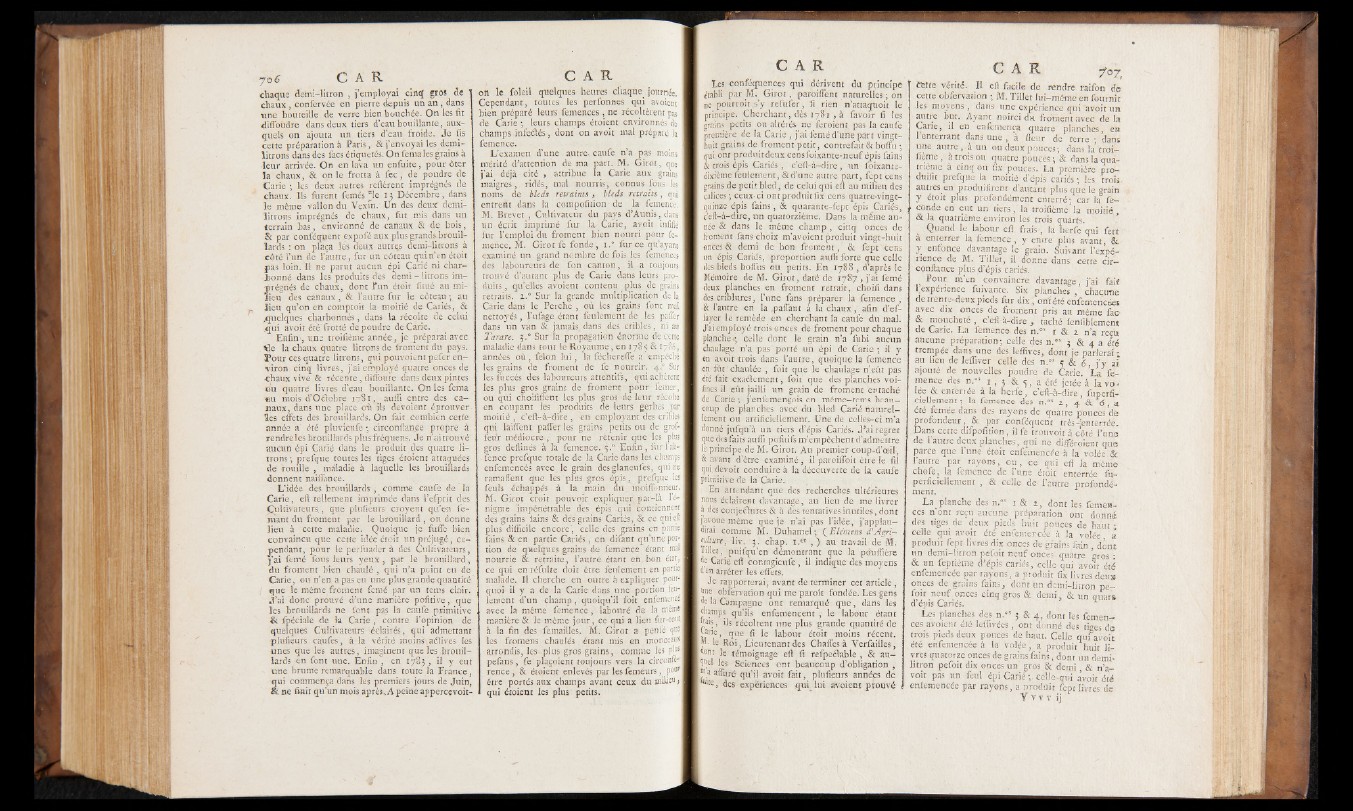 706 C A R
chaque demi-litron , j'employai cinq gros de
chaux , conservée en pierre depuis un an , dans
une bouteille de verre bien bouchée. On les fit
dissoudre dans deux tiers d'eau bouillante, aux-
quels on ajouta un tiers d'eau froide. Je fis
cette préparation à Paris, & j'envoyai les demi-
litrons dans des sacs étiquetés. On sema les grains à
leur arrivée. On en lava un ensuite, pour ôter
la chaux, & on le frotta à sec, de poudre de
Carie ; les deux autres restèrent imprégnés de
chaux. Ils furent semés le 13 Décembre, dans
le même vallon du Vexin. Un des deux demi-
litrons imprégnés de chaux, fut mis dans un
terrain bas, environné de canaux & de bois,
& par conséquent exposé aux plus grands brouil-
lards : on plaça les deux autres demi-litrons à
côté l'un de l'autre, sur un côteau qui n'en étoit
pas loin. Il ne parut aucun épi Carié ni char-
bonné dans les produits des demi-litrons im-
prégnés de chaux, dont l'un étoit situé au mi-
lieu des canaux, & l'autre sur le côteau ; au
lieu qu'on en comptoit la moitié de Cariés, &
quelques charbonnés, dans la récolte de celui
qui avoit été frotté de poudre de Carie.
Enfin, une troisième année, je préparai avec
de la chaux quatre litrons de froment du pays.
Pour ces quatre litrons, qui pouvoient peser en-
viron cinq livres, j'ai employé quatre onces de
chaux vive & récente, dissoute dans deux pintes
ou quatre livres d'eau bouillante. On les sema
au mois d'Octobre 1781, aussi entre des ca-
naux, dans une place où ils devoient éprouver
les effets des brouillards. On sait combien cette
année a été pluvieuse ; circonstance propre à
rendre les brouillards plus fréquens. Je n'ai trouvé
aucun épi Carié dans le produit des quatre li-
trons ; presque toutes les tiges étoient attaquées
de rouille , maladie à laquelle les brouillards
donnent naissance.
L'idée des brouillards , comme cause de la
Carie, est tellement imprimée dans l'esprit des
Cultivateurs, que plusieurs croyent qu'en se-
mant du froment par le brouillard, on donne
lieu à cette maladie. Quoique je fusse bien
convaincu que cette idée étoit un préjugé, ce-
pendant, pour le persuader à des Cultivateurs,
j'ai semé sous leurs yeux, par le brouillard,
du froment bien chaulé , qui n'a point eu de
Carie, ou n'en a pas eu une plus grande quantité
que le même froment semé par un tems clair.
J'ai donc prouvé d'une manière positive, que
les brouillards ne sont pas la cause primitive
& spéciale de la Carie, contre l'opinion de
quelques Cultivateurs éclairés, qui admettant
plusieurs causes, à la vérité moins actives les
unes que les autres, imaginent que les brouil-
lards en sont une. Enfin , en 1783, il y eut
une brume remarquable dans toute la France,
qui commença dans les premiers jours de Juin,
& ne finit qu'un mois après. A peine appercevoit-
C A R
on le soleil quelques heures chaque journée.
Cependant, toutes les personnes qui avoient
bien préparé leurs semences, ne récoltèrent pas
de Carie ; leurs champs étoient environnés de
champs infectés, dont on avoit mal préparé la
semence.
L'examen d'une autre cause n'a pas moins
mérité d'attention de ma part. M. Girot, que
j'ai déjà cité , attribue la Carie aux grains
maigres, ridés, mal nourris, connus sous les
noms de bleds retraits , bleds retraits, qui
entrent dans la composition de la semence.
M. Brevet , Cultivateur du pays d'Aunis, dans
un écrit imprimé sur la Carie, avoit insisté
sur l'emploi du froment bien nourri pour se-
mence. M. Girot se fonde, 1.° sur ce qu'ayant
examiné un grand nombre de fois les semences
des laboureurs de son canton, il a toujours
trouvé d'autant plus de Carie dans leurs pro-
duits, qu'elles avoient contenu plus de grains
retraits. 2.° Sur la grande multiplication de la
Carie dans le Perche , où les grains sont mal
nettoyés, l'usage étant seulement de les passer
dans un van & jamais dans des cribles, ni au
Tarare. 3.° Sur la propagation énorme de cette
maladie dans tout le Royaume, en 1785 & 1786,
années où, selon lui, la sécheresse a empêché
les grains de froment de se nourrir. 4.° Sur
les succès des laboureurs attentifs, qui achètent
les plus gros grains de froment pour semer,
ou qui choisissent les plus gros de leur récolte
en coupant les produits de leurs gerbes par
moitié , c'est-à-dire, en employant des cribles
qui laissent passer les grains petits ou de gros-
seur médiocre, pour ne retenir que les plus
gros destinés à la semence. 5.° Enfin, sur l'ab-
sence presque totale de la Carie dans les champs
ensemencés avec le grain des glaneuses, qui ne
ramassent que les plus gros épis, presque les
seuls échappés à la main du moissonneur.
M. Girot croit pouvoir expliquer par-là l'é-
nigme impénétrable des épis qui contiennent
des grains sains & des grains Cariés, & ce qui est
plus difficile encore , celle des grains en partie
sains & en partie Cariés, en disant qu'une por-
tion de quelques grains de semence étant mal
nourrie & retraite, l'autre étant en bon état,
ce qui en résulte doit être seulement en partie
malade. Il cherche en outre à expliquer pour-
quoi il y a de la Carie dans une portion seu-
lement d'un champ, quoiqu'il soit ensemencé
avec la même semence , labouré de la même
manière & le même jour, ce qui a lieu sur-tout
à la fin des semailles. M. Girot a pensé que
les fromens chaulés étant mis en monceaux
arrondis, les plus gros grains, comme les plus
pesans, se plaçoient toujours vers la circonfé-
rence, & étoient enlevés par les semeurs, pour
être portés aux champs avant ceux du milieu,
qui étoient les plus petits.
C A R
Les conséquences qui dérivent du principe
établi par M. Girot, paroissent naturelles ; on
ne pourroit s'y refuser, si rien n'attaquoit le
principe. Cherchant, dès 1783, à savoir si les
grains petits ou altérés ne seroient pas la cause
première de la Carie, j'ai semé d'une part vingt-
huit grains de froment petit, contrefait & bossu ;
qui ont produit deux cens soixante-neuf épis sains
& trois épis Cariés, c'est-à-dire, un soixante-
dixième seulement, & d'une autre part, sept cens
grains de petit bled, de celui qui est au milieu des
calices ; ceux-ci ont produit six cens quatre-vingt-
quinze épis sains, & quarante-sept épis Cariés,
c'est-à-dire, un quatorzième. Dans la même an-
née & dans le même champ, cinq onces de
froment sans choix m'avoient produit vingt-huit
onces & demi de bon froment, & sept cens
un épis Cariés, proportion aussi forte que celle
des bleds bossus ou petits. En 1788, d'après le
Mémoire de M. Girot, daté de 1787, j'ai semé
deux planches en froment retrait, choisi dans
des criblures, l'une sans préparer la semence,
& l'autre en la passant à la chaux, afin d'es-
sayer le remède en cherchant la cause du mal.
J'ai employé trois onces de froment pour chaque
planche ; celle dont le grain n'a subi aucun
chaulage n'a pas porté un épi de Carie ; il y
en avoit trois dans l'autre, quoique la semence
en fût chaulée , soit que le chaulage n'eût pas
été fait exactement, soit que des planches voi-
sines il eût jailli un grain de froment entaché
de Carie ; j'ensemençois en même-tems beau-
coup de planches avec du bled Carié naturel-
lement ou artificiellement. Une de celles-ci m'a
donné jusqu'à un tiers d'épis Cariés. J'ai regret
que des faits aussi positifs m'empêchent d'admettre
le principe de M. Girot. Au premier coup-d'œil,
& avant d'être examiné, il paroissoit être le fil
qui devoit conduire à la découverte de la cause
primitive de la Carie.
En attendant que des recherches ultérieures
nous éclairent davantage, au lieu de me livrer
à des conjectures & à des tentatives inutiles, dont
j'avoue même que je n'ai pas l'idée, j'applau-
dirai comme M. Duhamel ; ( Elémens d'Agri-
culture, liv. 3. chap. 1.er , ) au travail de M.
Tillet, puisqu'en démontrant que la poussière
de Carie est contagieuse, il indique des moyens
d'en arrêter les effets.
Je rapporterai, avant de terminer cet article,
une observation qui me paroît fondée. Les gens
de la Campagne ont remarqué que, dans les
champs qu'ils ensemencent , le labour étant
frais, ils récoltent une plus grande quantité de
Carie, que si le labour étoit moins récent.
M. le Roi, Lieutenant des Chasses à Versailles,
dont le témoignage est si respectable , & au-
quel les Sciences ont beaucoup d'obligation ,
m'a assuré qu'il avoit fait, plusieurs années de
suite, des expériences qui lui avoient prouvé
C A R 707
cette vérité. Il est facile de rendre raison de
cette observation ; M. Tillet lui-même en fournit
les moyens, dans une expérience qui avoit un
autre but. Ayant noirci du froment avec de la
Carie, il en ensemença quatre planches, en
l'enterrant dans une , à fleur de terre ; dans
une autre, à un ou deux pouces ; dans la troi-
sième, à trois ou quatre pouces ; & dans la qua-
trième à cinq ou six pouces. La première pro-
duisit presque la moitié d'épis cariés ; les trois
autres en produisirent d'autant plus que le grain
y étoit plus profondément enterré ; car la se-
conde en eut un tiers, la troisième la moitié,
& la quatrième environ les trois quarts.
Quand le labour est frais, la herse qui sert
à enterrer la semence , y entre plus avant, &
y enfonce davantage le grain. Suivant l'expé-
rience de M. Tillet, il donne dans cette cir-
constance plus d'épis cariés.
Pour m'en convaincre davantage, j'ai fait
l'expérience suivante. Six planches , chacune
de trente-deux pieds sur dix, ont été ensemencées
avec dix onces de froment pris au même sac
& moucheté , c'est-à-dire , taché sensiblement
de Carie. La semence des n.os 1 & 2 n'a reçu
aucune préparation ; celle des n.os 3 & 4 a été
trempée dans une des lessives, dont je parlerai ;
au lieu de lessiver celle des n.os 5 & 6, j'y ai
ajouté de nouvelles poudre de Carie. La se-
mence des n.os 1, 3 & 5, a été jetée à la vo-
lée & enterrée à la herse, c'est-à-dire, superfi-
ciellement ; la semence des n.os 2, 4 & 6, a
été semée dans des rayons de quatre pouces de
profondeur, & par conséquent très-enterrée.
Dans cette disposition, il se trouvoit à côté l'une
de l'autre deux planches, qui ne différoient que
parce que l'une étoit ensemencée à la volée &
l'autre par rayons, ou, ce qui est la même
chose, la semence de l'une étoit enterrée su-
perficiellement , & celle de l'autre profondé-
ment.
La planche des n.os 1 & 2, dont les semen-
ces n'ont reçu aucune préparation ont donné
des tiges de deux pieds huit pouces de haut ;
celle qui avoit été ensemencée à la volée, a
produit sept livres dix onces de grains sain, dont
un demi-litron pesoit neuf onces quatre gros ;
& un septième d'épis cariés, celle qui avoit été
ensemencée par rayons, a produit six livres deux
onces de grains sains, dont un demi-litron pe-
soit neuf onces cinq gros & demi, & un quart
d'épis Cariés.
Les planches des n.os 3 & 4, dont les semen-
ces avoient été lessivées, ont donné des tiges de
trois pieds deux pouces de haut. Celle qui avoit
été ensemencée à la volée, a produit huit li-
vres quatorze onces de grains sains, dont un demi-
litron pesoit dix onces un gros & demi, & n'a-
voit pas un seul épi Carié ; celle-qui avoit été
ensemencée par rayons, a produit sept livres de
Y v v v ij